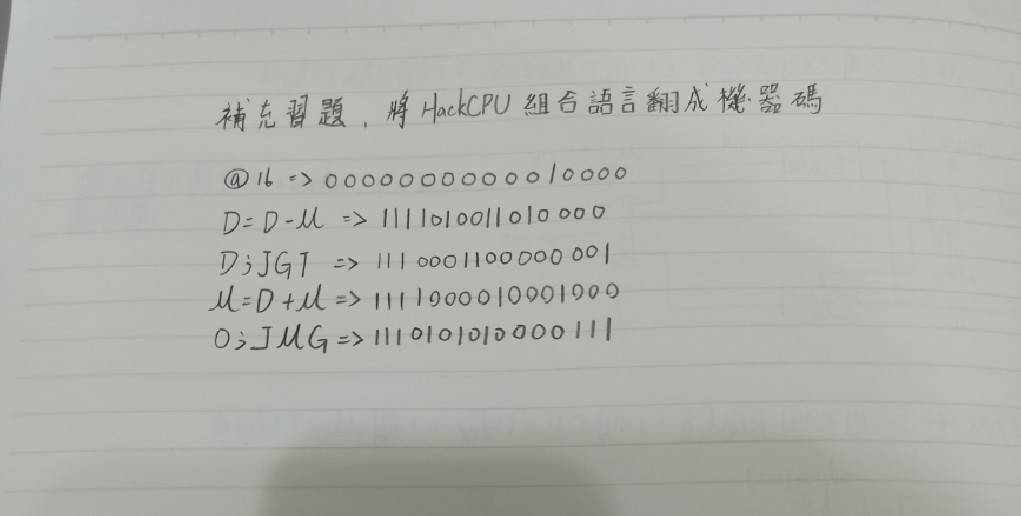 補充習題，將HackCPU組合語言翻成機器碼
@16 => 0000000000010000
D=D-M => 1111010011010000
D;JGT => 1110001100000001
M=D+M => 1111000010001000
0;JMG => 1110101010000111